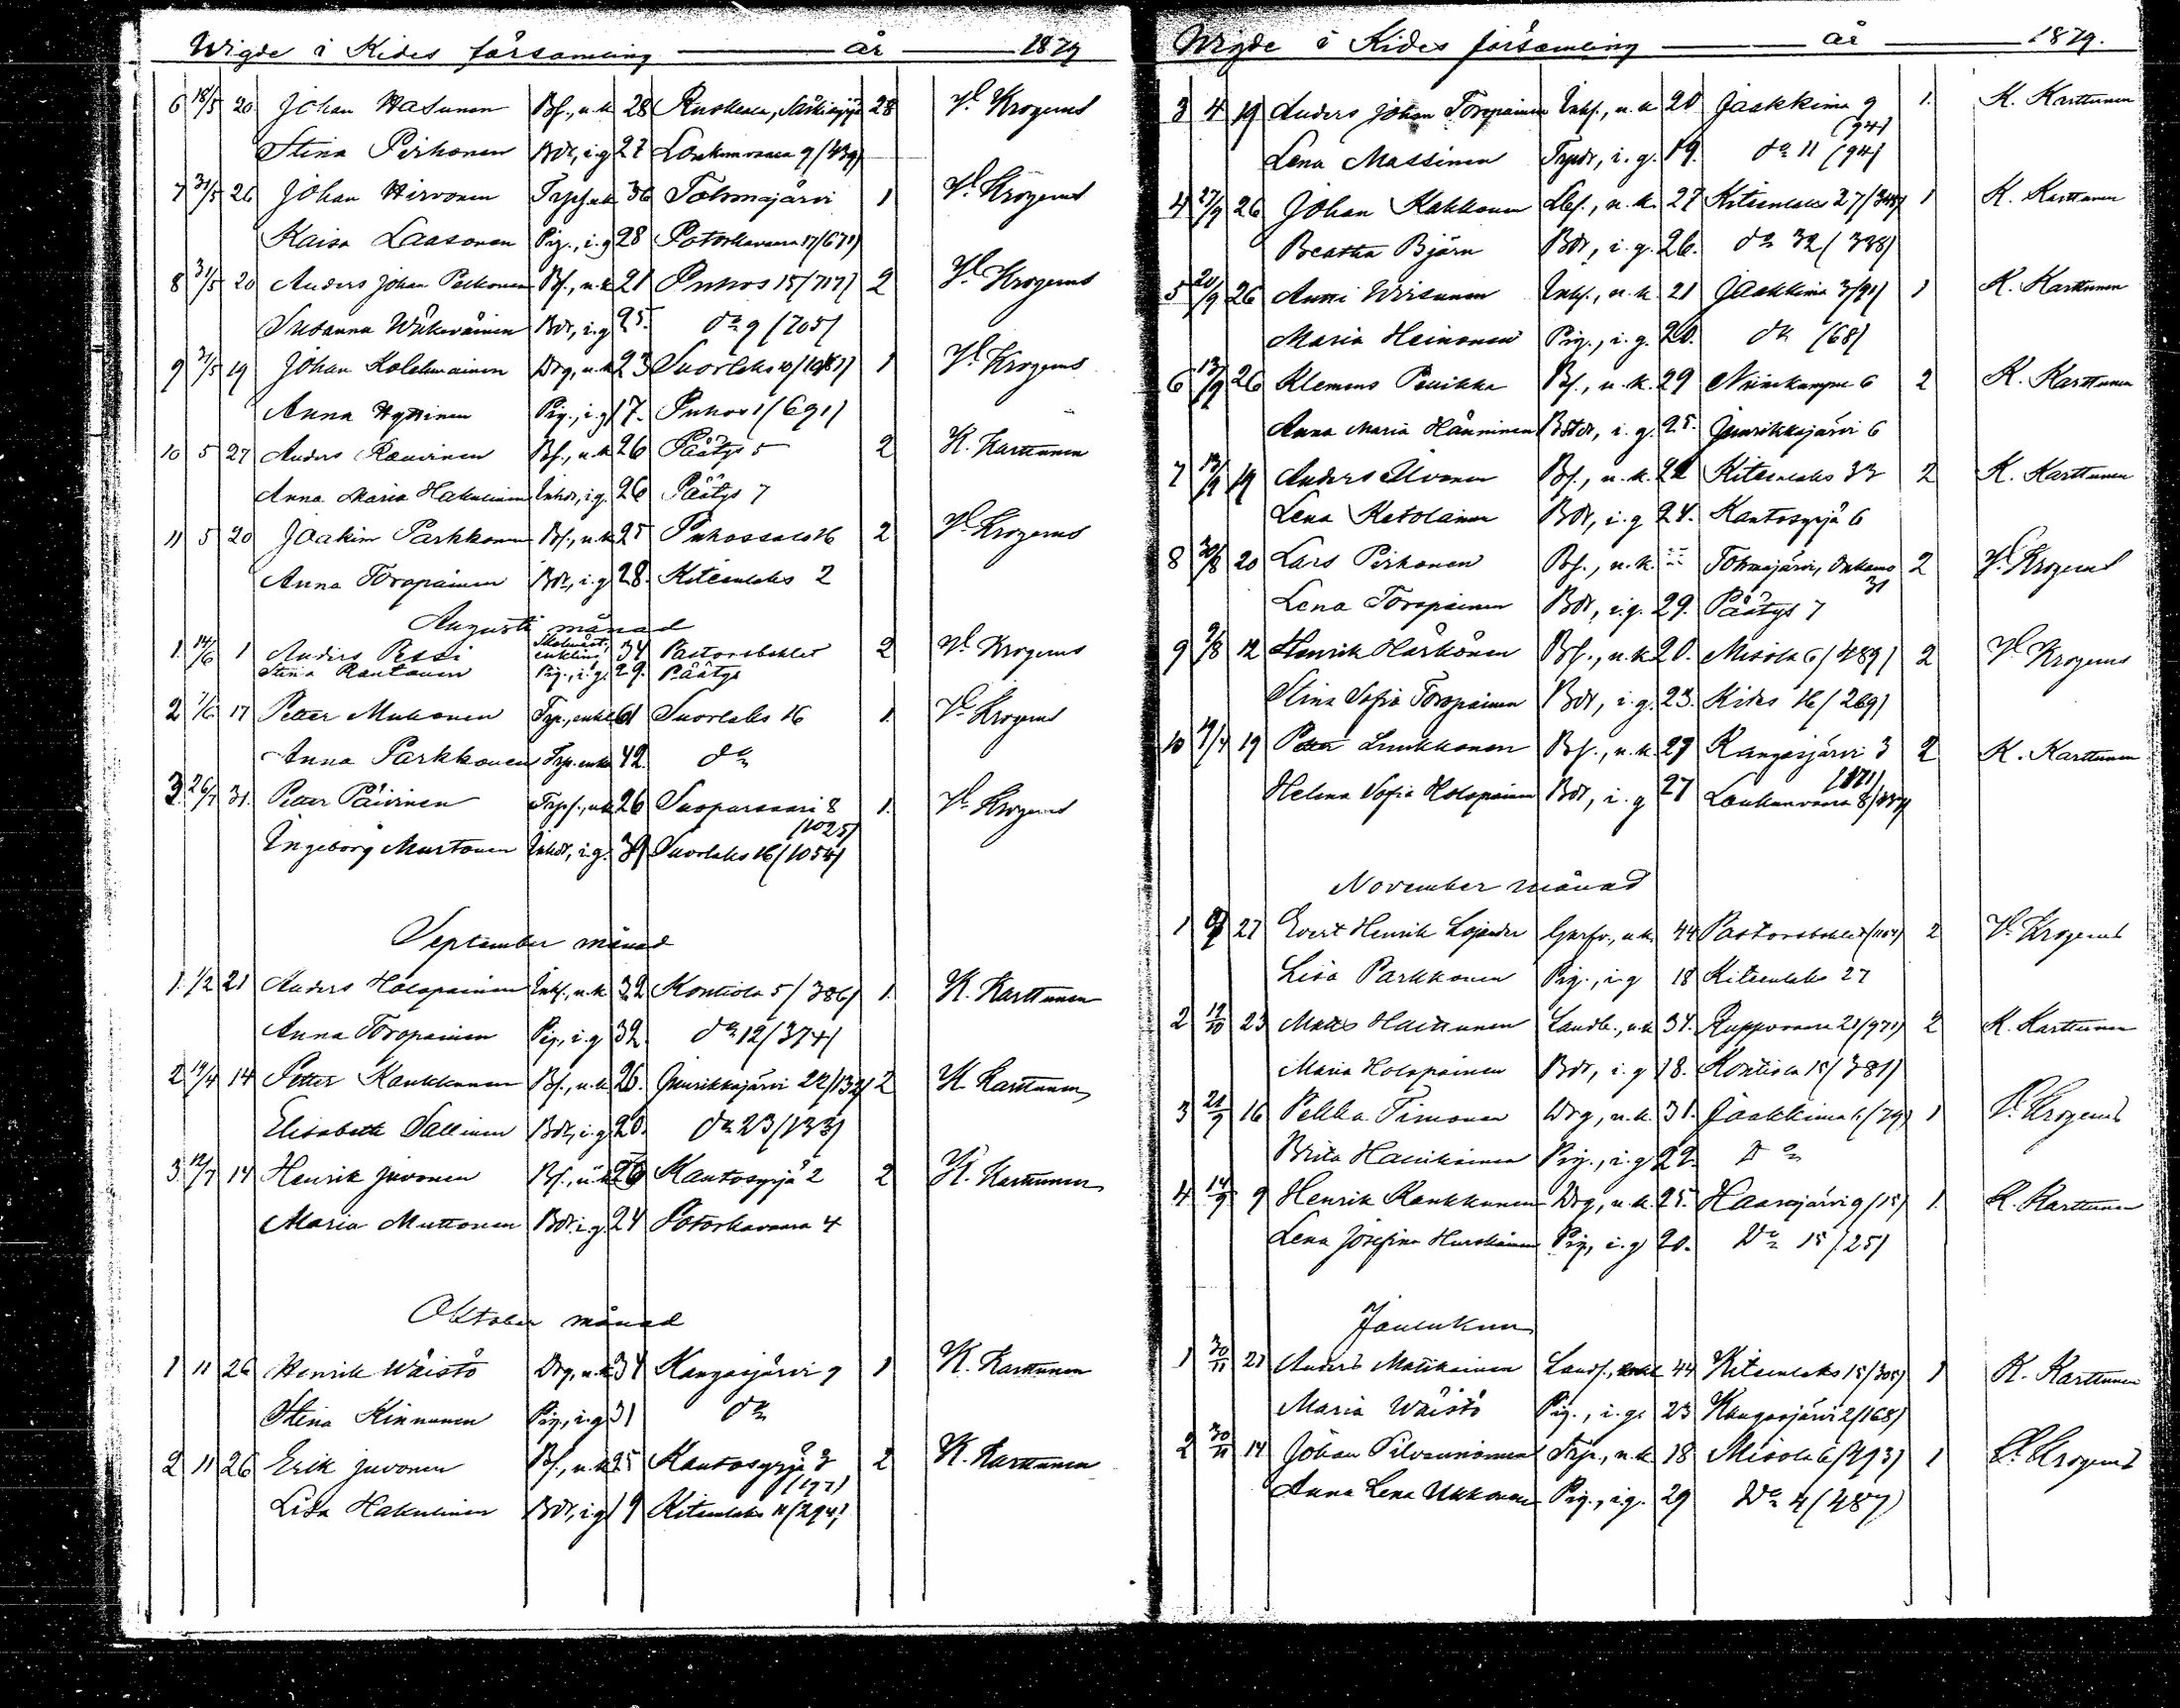 Wigde i Kides församling år 1879
6 18/5 20 Johan Hasunen Bf., u.k. 28 Ruskeala, 28 Vl Krogerus
Stina Pirhonen Bdr, i.g 27 Loukunvaara 9/439/
7 31/5 26 Johan Hirvonen Trpf. u.k 36 Tohmajärvi 1 Vl Krogerus
Kaisa Laasonen Pig., i.g 28 Potoskavaara 17/671/
8 31/5 20 Anders Johan Pakkonen Bf., u.k 21 Puhos 15/717/ 2 Vl Krogerus
Susanna Wäkeväinen Bdr, i.g 25. do 9/705/
9 31/5 19 Johan Kolehmainen Drg, u.k 23 Suorlaks 10/1087/ 1 Vl Krogerus
Anna Hyttinen Pig., i.g 17. Puhos 1/691/
10 5 27 Anders Rauvinen Bf., u.k 26 Päätys 5 2 K. Karttunen
Anna Maria Hakulinen Inhdr, i.g. 26 Päätys 7
11 5 20 Joakim Parkkonen Bf., u.k 25 Puhossalo 16 2 Vl Krogerus
Anna Toropainen Bdr, i.g 28. Kiteenlaks 2
Augusti månad
1. 14/6 1 Anders Pessi enkling 34 Pastorsbohlet 2 Vl Krogerus
Stina Rautanen Pig., i.g. 29. Päätys
2 7/6 17 Petter Muhonen Trp., enkl. 61 Suorlaks 16 1. Vl Krogerus
Anna Parkkonen Trp. enka 42. do
3. 26/7 31. Petter Päivinen Trpf., u.k 26 Suoparsaari 8 1. Vl Krogerus
/1025/
Ingeborg Murtonen Inhdr, i.g. Suorlaks 16/1054/
September månad
1. 1/2 21 Anders Holopainen Inhf., u.k 32 Kontiola 5/386/ 1. K. Karttunen
Anna Toropainen Pig., i.g 32. do 12/374/
2 14/4 14 Petter Kaukkanen Bf., u.k. 26. Juurikkajärvi 22/132/ 2 K. Karttunen
Elisabeth Sallinen Bdr, i.g 20. do 23/133/
3. 12/7 14 Henrik Juvonen Bf., u.k 26 Kantosyrjä 2 2 K. Karttunen
Maria Muttonen Bdr. i.g. 24 Potoskavaara 4
Oktober månad
1 11 26 Henrik Wäistö Drg, u.k 34 Kangasjärvi 9 1 K. Karttunen
Stina Kinnunen Pig., i.g 31 do
2 11 26 Erik Juvonen Bf., u.k 25 Kantosyrjä 3 2 K. Karttunen
/197/
Lisa Hakulinen Bdr, i.g 19 Kiteenlaks 11/294/
Wigde i Kides församling år 1879.
3 4 19 Anders Johan Toropainen Inhf., u.k 20 Jaakkima 9 1. K. Karttunen
/94/
Lena Massinen Trpdr, i.g. 19. do 11 /94/
4 27/9 26 Johan Kakkonen Lbf., u.k. 27 Kiteenlaks 27/348/ 1 K. Karttunen
Beatha Björn Bdr, i.g. 26. do 32/338/
5 20/9 26 Anni Wirsunen Inhf., u.k. 21 Jaakkima 3/91/ 1 K. Karttunen
Maria Heinonen Pig., i.g. 20. do /68/
6 13/9 26 Klemens Penikka Bf., u.k. 29 Niinikumpu 6 2 K. Karttunen
Anna Maria Hänninen Bdtr, i.g. 25. Juurikkajärvi 6
7 13/9 19 Anders Ilvonen Bf., u.k. 22 Kiteenlaks 33 2 K. Karttunen
Lena Ketolainen Bdr, i.g 24. Kantosyrjä 6
8 30/8 20 Lars Pirhonen Bf., u.k. -- Tohmajärvi, Onkamo 2 Vl Krogerus
31
Lena Toropainen Bdr, i.g. 29. Päätys 7
9 9/8 12 Henrik Härkönen Bf., u.k 20. Misola 6/489/ 2 Vl Krogerus
Stina Sofia Toropainen Bdr, i.g. 23. Kides 16/269/
10 19/4 19 Petter Luukkonen Bf., u.k. 27 Kangasjärvi 3 2 K. Karttunen
/171/
Helena Sofia Holopainen Bdr, i.g 27 Loukunvaara 8/
November månad
1 27 Evert Henrik Lojander u.k. 44 Pastorsbohlet 2 Vl Krogerus
Lisa Parkkonen Pig., i.g 18 Kiteenlaks 27
2 19/10 23 Matts Hakkunen Landb., u.k 34. Ruppovaara 21/971/ 2 K. Karttunen
Maria Holopainen Bdr, i.g 18. Kontiola 15/381/
3 21/9 16 Pekka Timonen Drg, u.k. 31. Jaakkima 6/79/ 1 Vl Krogerus
Brita Haukainen Pig., i.g 22. Do
4 14/9 9 Henrik Kaukkunen Drg, u.k. 25. Haarajärvi 9/15/ 1. K. Karttunen
Lena Josefina Hurskainen Pig., i.g 20. Do 15/25/
Joulukuu
1 30/11 21 Anders Matikainen Landf., enkl 44 Kiteenlaks 15/305/ 1 K. Karttunen
Maria Wäistö Pig., i.g. 23 Kangasjärvi 2/168/
2 30/11 14 Johan Pilvauniemi Trp., u.k. 18 Misola 6/493/ 1 Vl Krogerus
Anna Lena Ukkonen Pig., i.g. 29 Do 4/487/